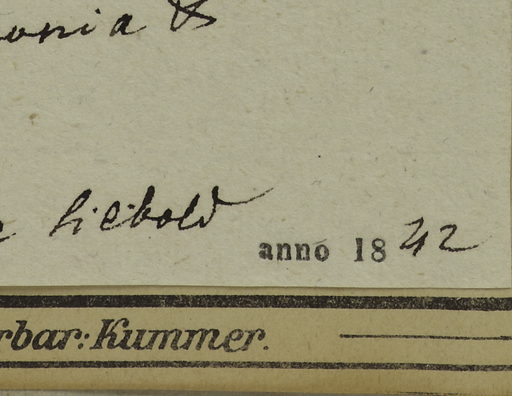 onia &
Siebold
anno 1842
rbar: Kummer.